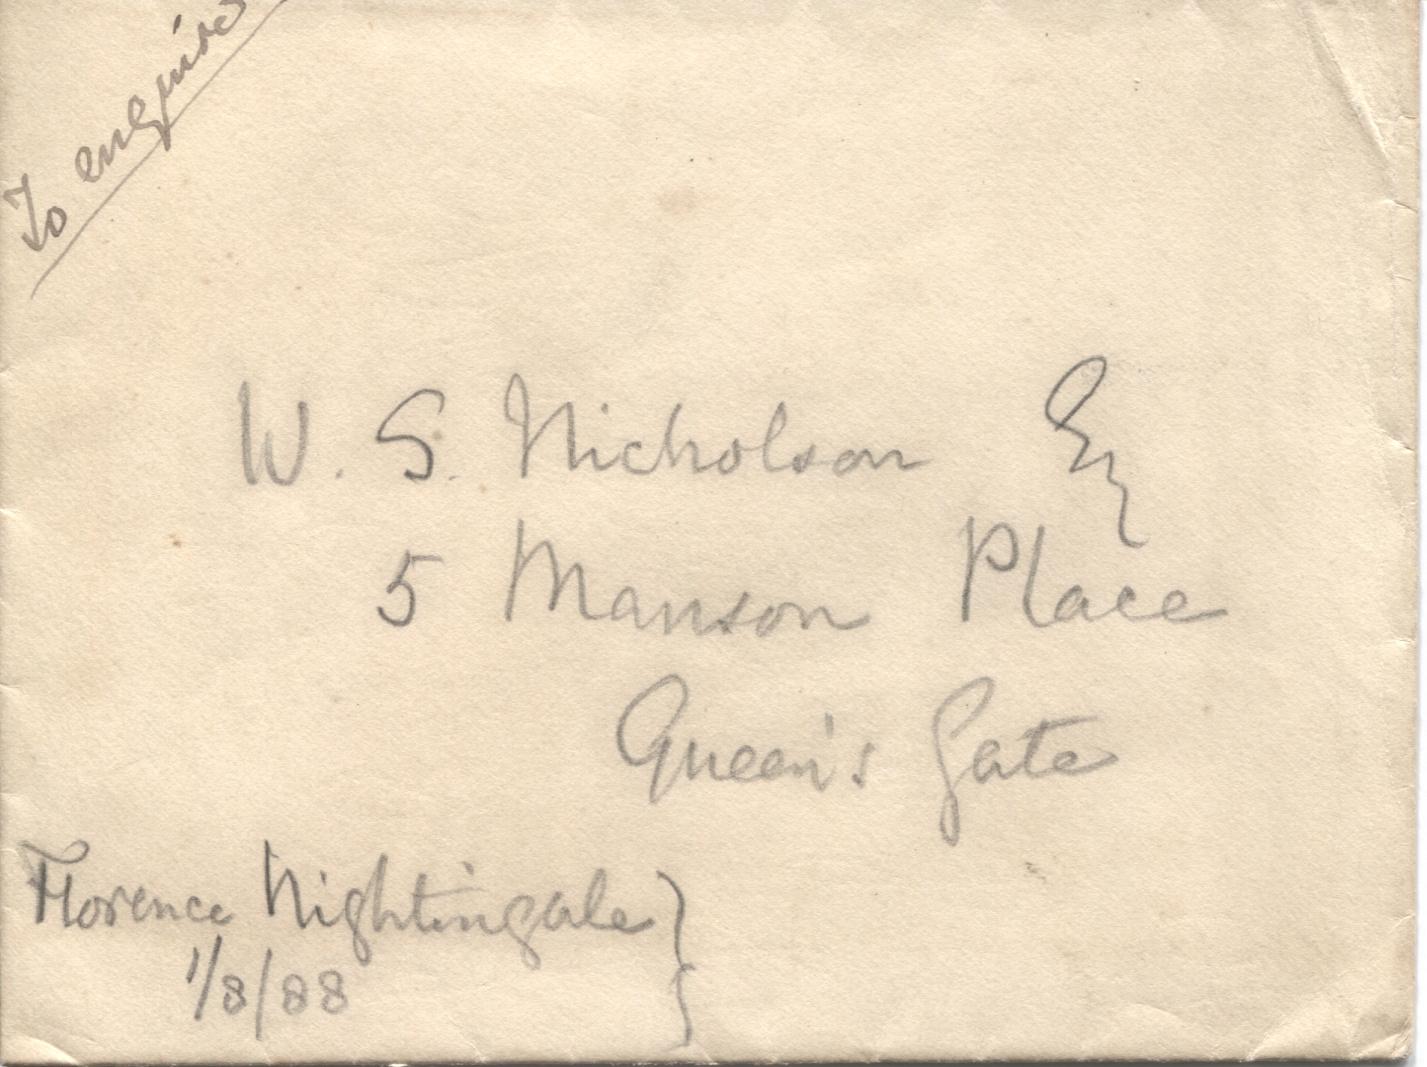 To enquire
W. S. Nicholson Esq
5 Manson Place
Queen's Gate
Florence Nightingale
1/8/88